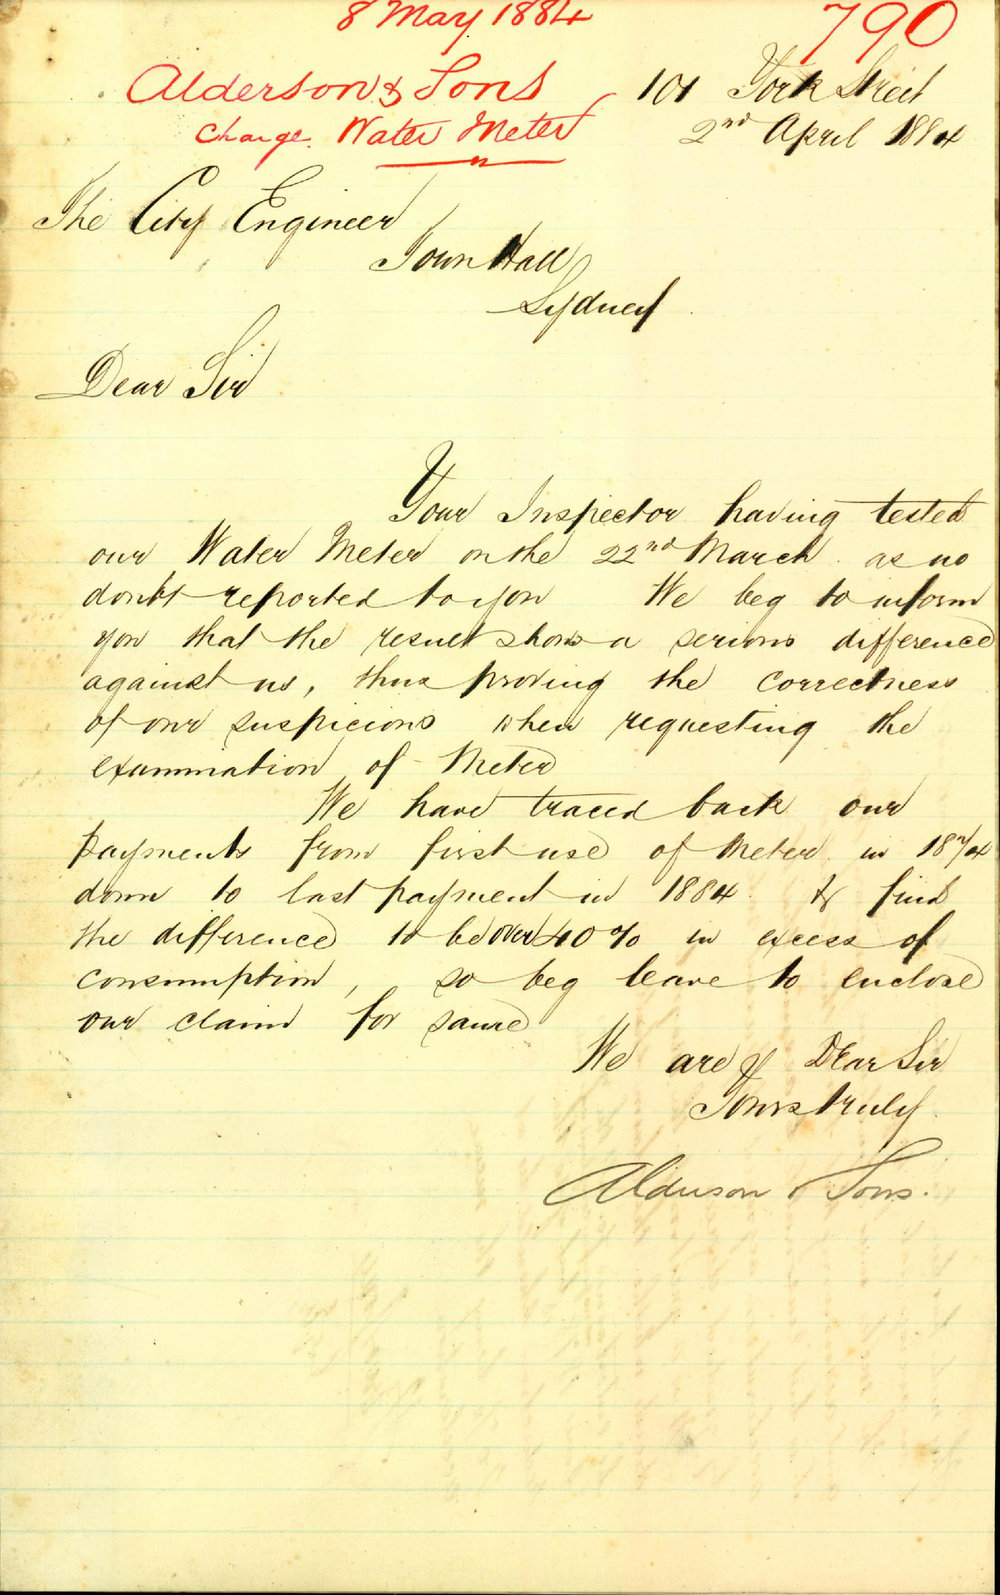 8 May 1884
790
Alderson & Sons
Charge Water Meter
101 York Street
2nd April 1884
The City Engineer
Town Hall
Sydney
Dear Sir
Your Inspector having tested
our Water Meter on the 22nd March as no
doubt reported to you We beg to inform
you that the result shows a serious difference
against us, thus proving the correctness
of our suspicions when requesting the
examination of Meter
We have traced back our
payments from first use of Meter in
down to last payment in 1884 & find
the difference to be over 40% in excess of
consumption, so beg leave to enclose
our claim for same
We are Dear Sir
Yours truly
Alderson & Sons.